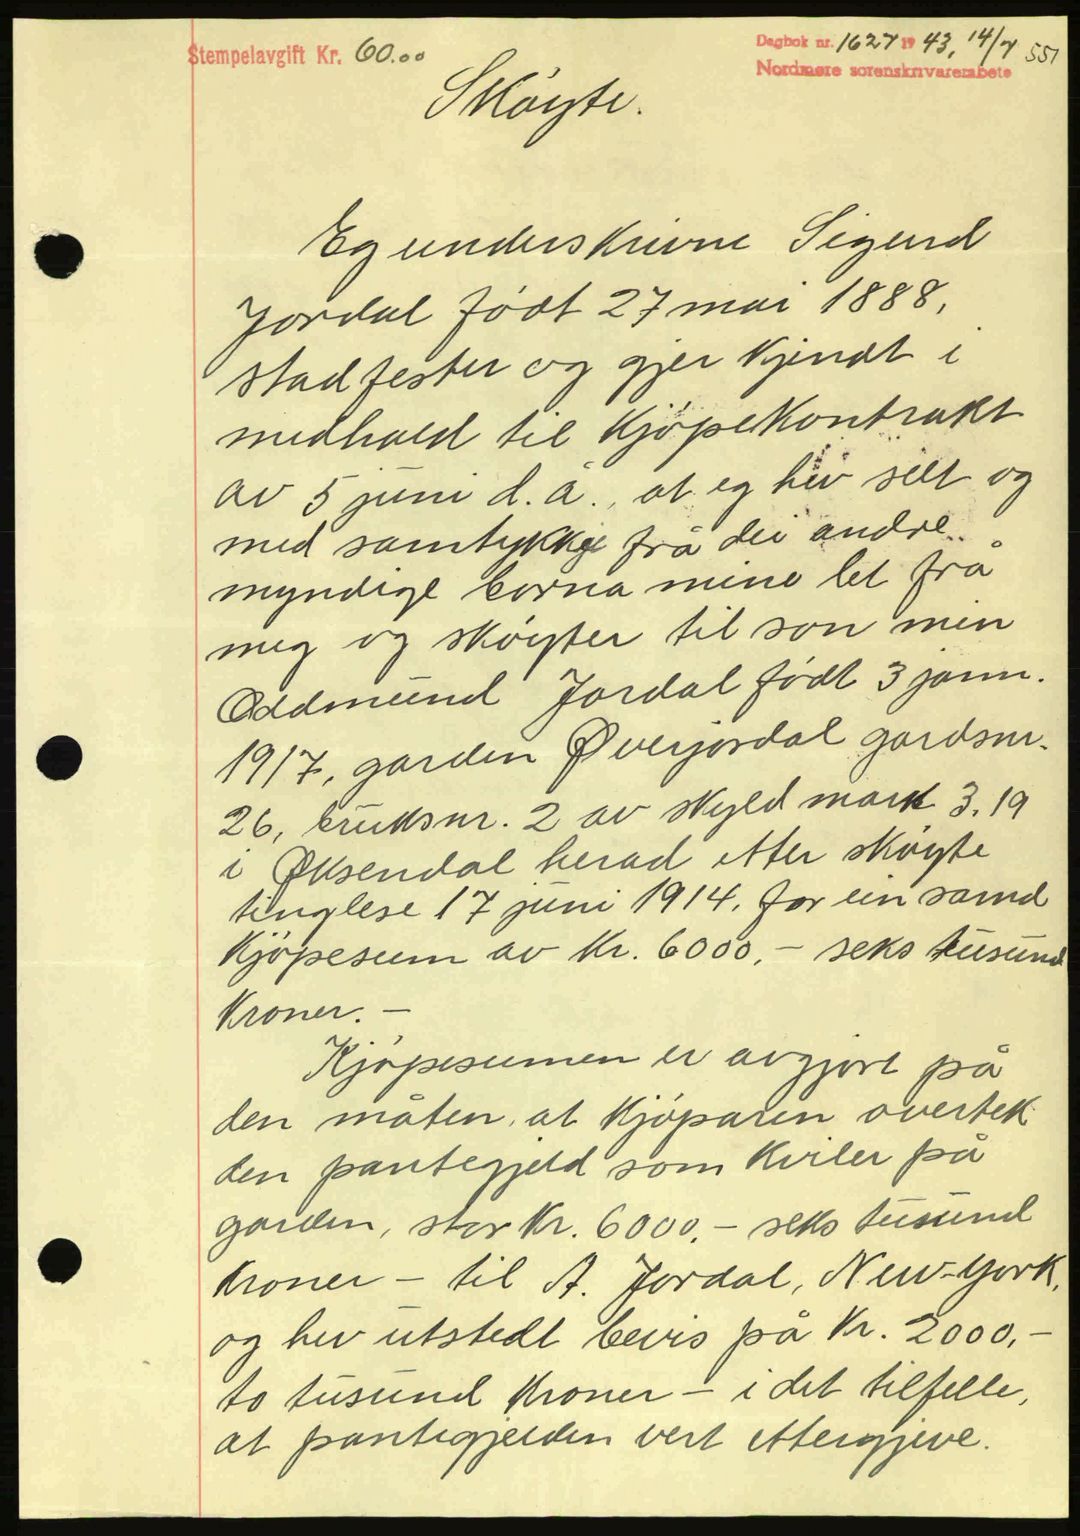 Stempelavgift Kr. 60.00
Dagbok nr. 1627 1943, 14/7 551
Nordmøre sorenskrivarembete
Skøyte.
Eg underskrivne Sigurd
Jordal født 27 mai 1888,
stadfester og gjer kjendt i
medhald til kjøpekontrakt
av 5 juni d.å., at eg hev selt og
med samtykkje frå dei andre
myndige borna mine let frå
meg og skøyter til son min
Oddmund Jordal født 3 jann.
1917, garden Øverjordal gardsnr.
26, bruksnr. 2 av skyld mark 3.19
i Øksendal herad etter skøyte
tinglese 17 juni 1914, for ein samd
kjøpesum av kr. 6000,- seks tusund
kroner.-
Kjøpesumen er avgjort på
den måten, at kjøparen overtek
den pantegjeld som kviler på
garden, stor kr. 6000,- seks tusund
kroner - til A. Jordal, New-York,
og hev utstedt bevis på kr. 2000,-
to tusund kroner - i det tilfelle,
at pantegjelden vert ettergjeve.